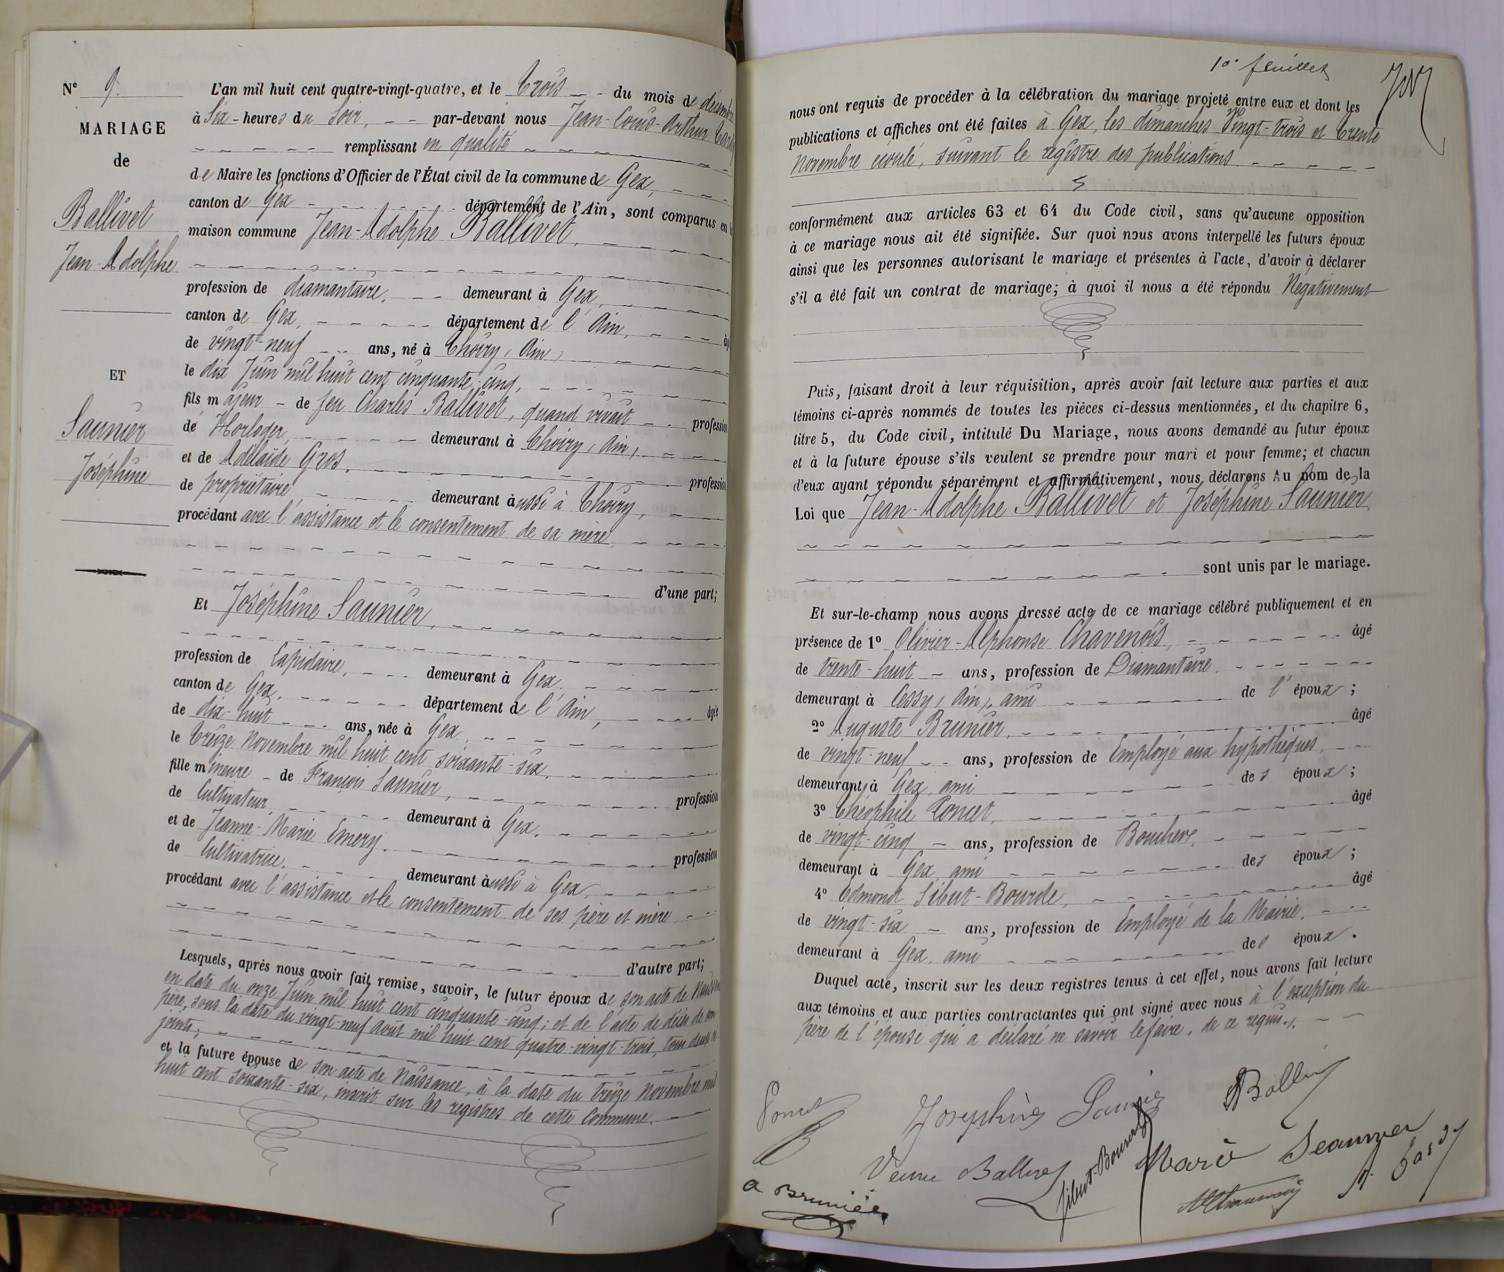 N° 9.
MARIAGE
de
Ballivet
Jean-Adolphe
ET
Saunier
Joséphine
L'an mil huit cent quatre-vingt-quatre, et le Trois du mois de décembre
à Six heures du Soir, par-devant nous Jean-Louis-Arthur
remplissant en qualité
de Maire les fonctions d'Officier de l'État civil de la commune de Gex,
canton de Gex département de l'Ain, sont comparus en
maison commune Jean-Adolphe Ballivet,
profession de diamantaire, demeurant à Gex,
canton de Gex, département de l'Ain,
de vingt-neuf ans, né à Thoiry, Ain,
le dix Juin mil huit cent cinquante-cinq,
fils majeur de feu Charles Ballivet, quand vivait profession
de Horloger, demeurant à Thoiry, Ain,
et de Adélaïde Gros, profession
de propriétaire demeurant aussi à Thoiry,
procédant avec l'assistance et le consentement de sa mère
d'une part;
Et Joséphine Saunier,
profession de Lapidaire, demeurant à Gex,
canton de Gex, département de l'Ain, âgée
de dix-huit ans, née à Gex,
le treize Novembre mil huit cent soixante-six,
fille mineure de François Saunier, profession
de Cultivateur, demeurant à Gex,
et de Jeanne-Marie Emery, profession
de Cultivatrice, demeurant aussi à Gex,
procédant avec l'assistance et le consentement de ses père et mère
d'autre part;
Lesquels, après nous avoir fait remise, savoir, le futur époux de son acte de
en date du onze Juin mil huit cent cinquante-cinq; et de l'acte de décès de son
père, sous la date du vingt-neuf août mil huit cent quatre-vingt-trois, tous deux
joints;
et la future épouse de son acte de Naissance, à la date du treize Novembre mil
huit cent soixante-six, inscrit sur les registres de cette Commune.
10e feuillet
nous ont requis de procéder à la célébration du mariage projeté entre eux et dont les
publications et affiches ont été faites à Gex, les dimanches Vingt-trois et trente
Novembre écoulé, suivant le registre des publications
conformément aux articles 63 et 64 du Code civil, sans qu'aucune opposition
à ce mariage nous ait été signifiée. Sur quoi nous avons interpellé les futurs époux
ainsi que les personnes autorisant le mariage et présentes à l'acte, d'avoir à déclarer
s'il a été fait un contrat de mariage; à quoi il nous a été répondu Négativement
Puis, faisant droit à leur réquisition, après avoir fait lecture aux parties et aux
témoins ci-après nommés de toutes les pièces ci-dessus mentionnées, et du chapitre 6,
titre 5, du Code civil, intitulé Du Mariage, nous avons demandé au futur époux
et à la future épouse s'ils veulent se prendre pour mari et pour femme; et chacun
d'eux ayant répondu séparément et affirmativement, nous déclarons Au nom de la
Loi que Jean-Adolphe Ballivet et Joséphine Saunier,
sont unis par le mariage.
Et sur-le-champ nous avons dressé acte de ce mariage célébré publiquement et en
présence de 1° Olivier-Alphonse Chavenois, âgé
de trente-huit ans, profession de Diamantaire
demeurant à Cessy, Ain, ami de l'époux;
2° Auguste Brunier, âgé
de vingt-neuf ans, profession de Employé aux hypothèques,
demeurant à Gex, ami des époux;
3° Théophile Poncet, âgé
de vingt-cinq ans, profession de Boucher,
demeurant à Gex, ami des époux;
4° Edmond Sibut-Bourde, âgé
de vingt-six ans, profession de Employé de la Mairie,
demeurant à Gex, ami des époux.
Duquel acte, inscrit sur les deux registres tenus à cet effet, nous avons fait lecture
aux témoins et aux parties contractantes qui ont signé avec nous à l'exception du
père de l'épouse qui a déclaré ne savoir le faire, de ce requis.
Poncet
Joséphine Saunier
Veuve Ballivet
Sibut-Bourde
A Brunier